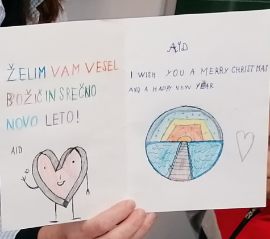 ŽELIM VAM VESEL
BOŽIČ IN SREČNO
NOVO LETO!
AID
AID
I WISH YOU A MERRY CHRISTMAS
AND A HAPPY NEW YEAR